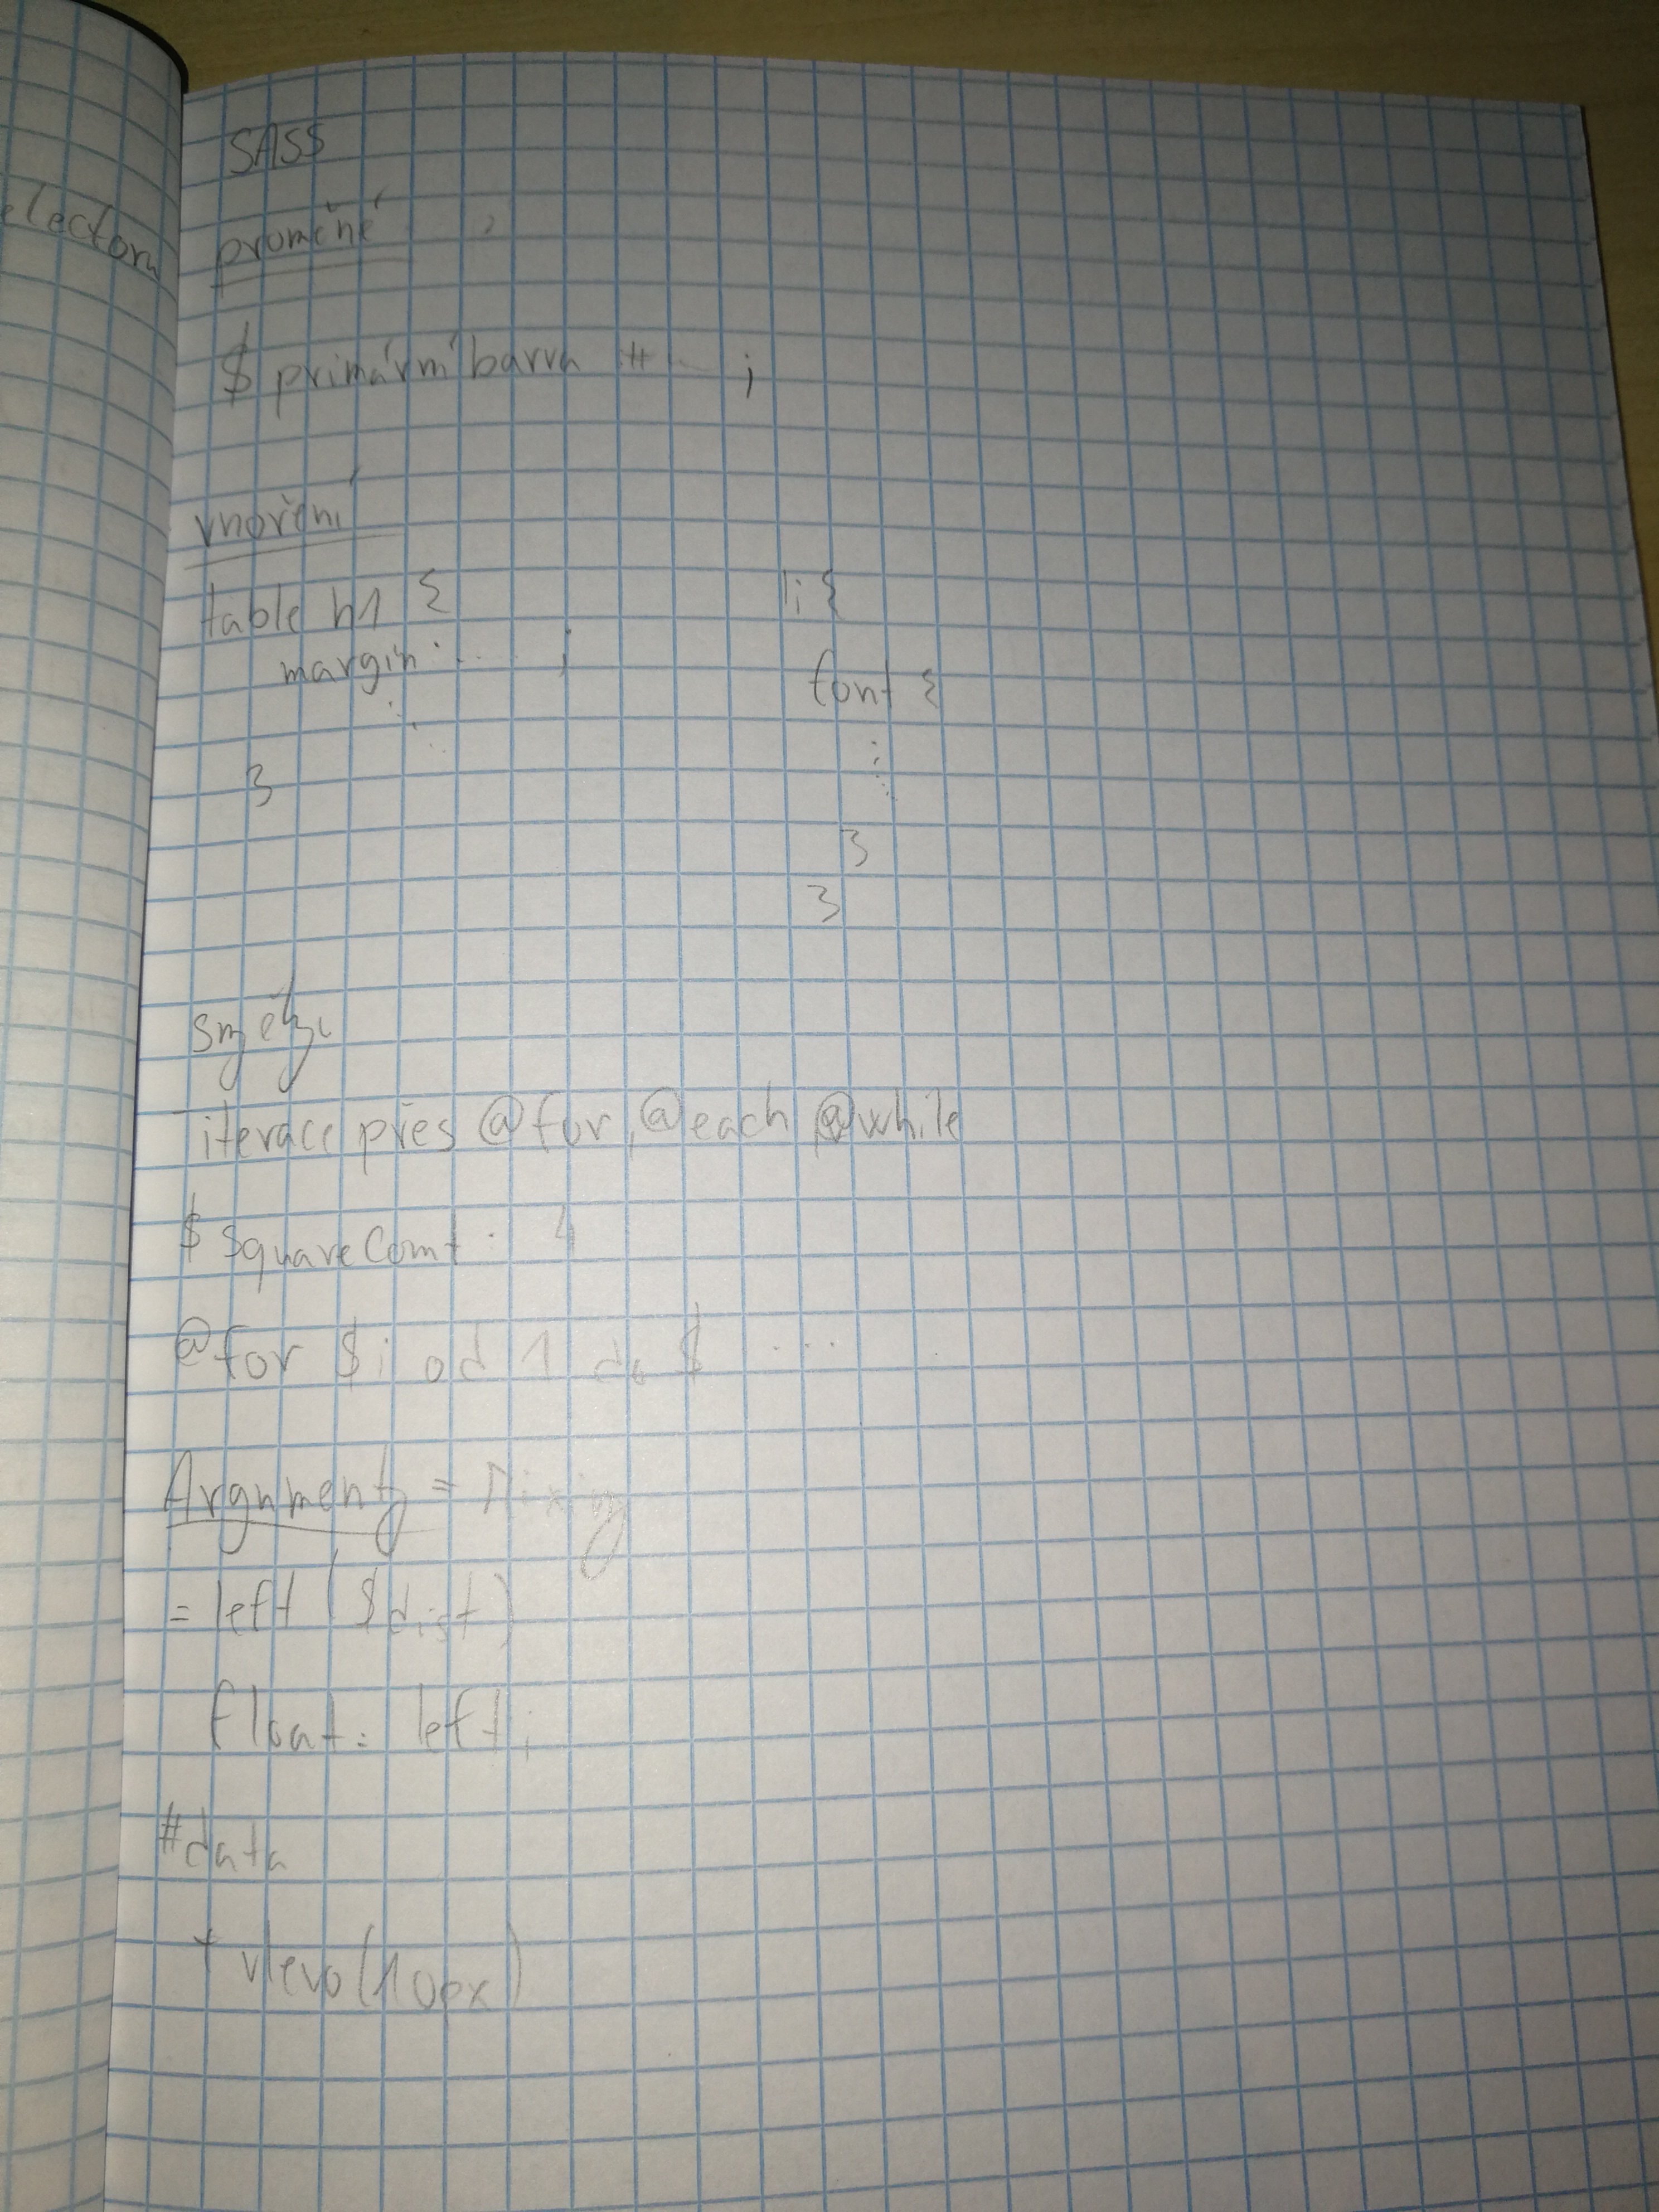 SASS
electoru
proměné
$ primární barva # ;
vnoření
table h1 {
margin: ... ;
}
li {
font {
}
}
Smyčky
- iterace přes @for, @each @while
$ squareCount: 4
@for $i od 1 do $ ...
Argumenty = Mixiny
= left ($dist)
float: left;
#data
+ vlevo(10px)